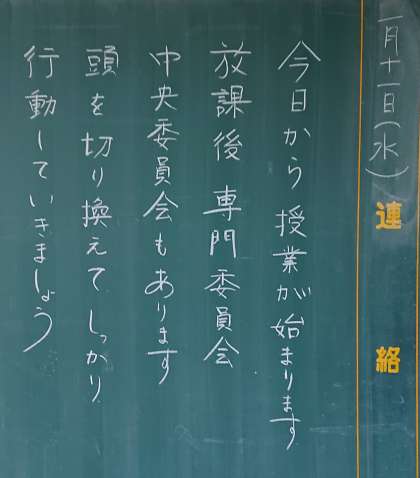 一月十一日(水)
連絡
今日から授業が始まります
放課後 専門委員会
中央委員会もあります
頭を切り換えてしっかり
行動していきましょう